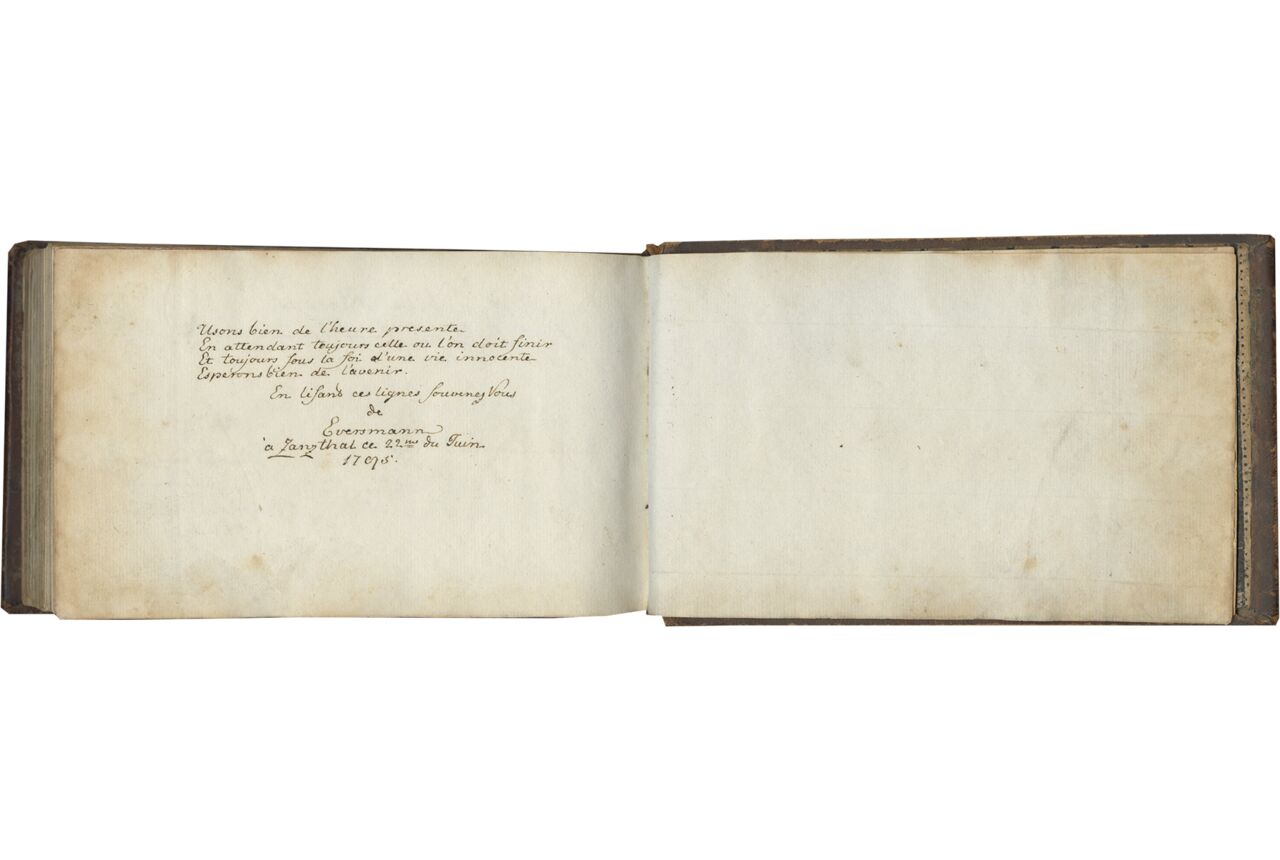 Usons bien de l'heure presente
En attendant toujours celle ou l'on doit finir
Et toujours sous la foi d'une vie innocente
Esperons bien de l'avenir.
En lisant ces lignes souvenez Vous
de
Eversmann
à Zanzthal ce 22me du Juin
1795.